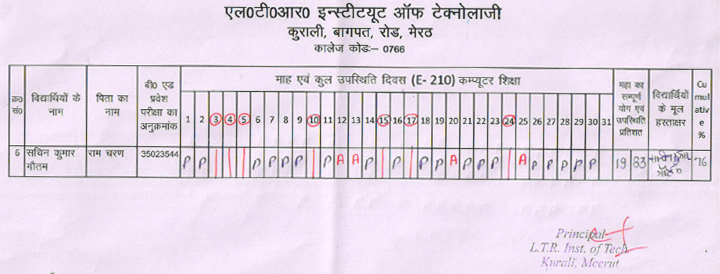 एल0टी0आर0 इन्स्टीटयूट ऑफ टेक्नोलाजी
कुराली, बागपत, रोड, मेरठ
कालेज कोड:– 0766
क्र0 सं0 विद्यार्थियों के नाम पिता का नाम बी0 एड प्रवेश परीक्षा का अनुक्रमांक माह एवं कुल उपस्थिति दिवस (E- 210) कम्प्यूटर शिक्षा महा का सम्पूर्ण योग एवं उपस्थिति प्रतिशत विद्यार्थियों के मूल हस्ताक्षर Cu mul ativ e %
1 2 3 4 5 6 7 8 9 10 11 12 13 14 15 16 17 18 19 20 21 22 23 24 25 26 27 28 29 30 31
6 सचिन कुमार गौतम राम चरण 35023544 P P P P P P P A A P P P P A P P P A P P P P P P 19 83 76
Principal
L.T.R. Inst. of Tech
Kurali, Meerut